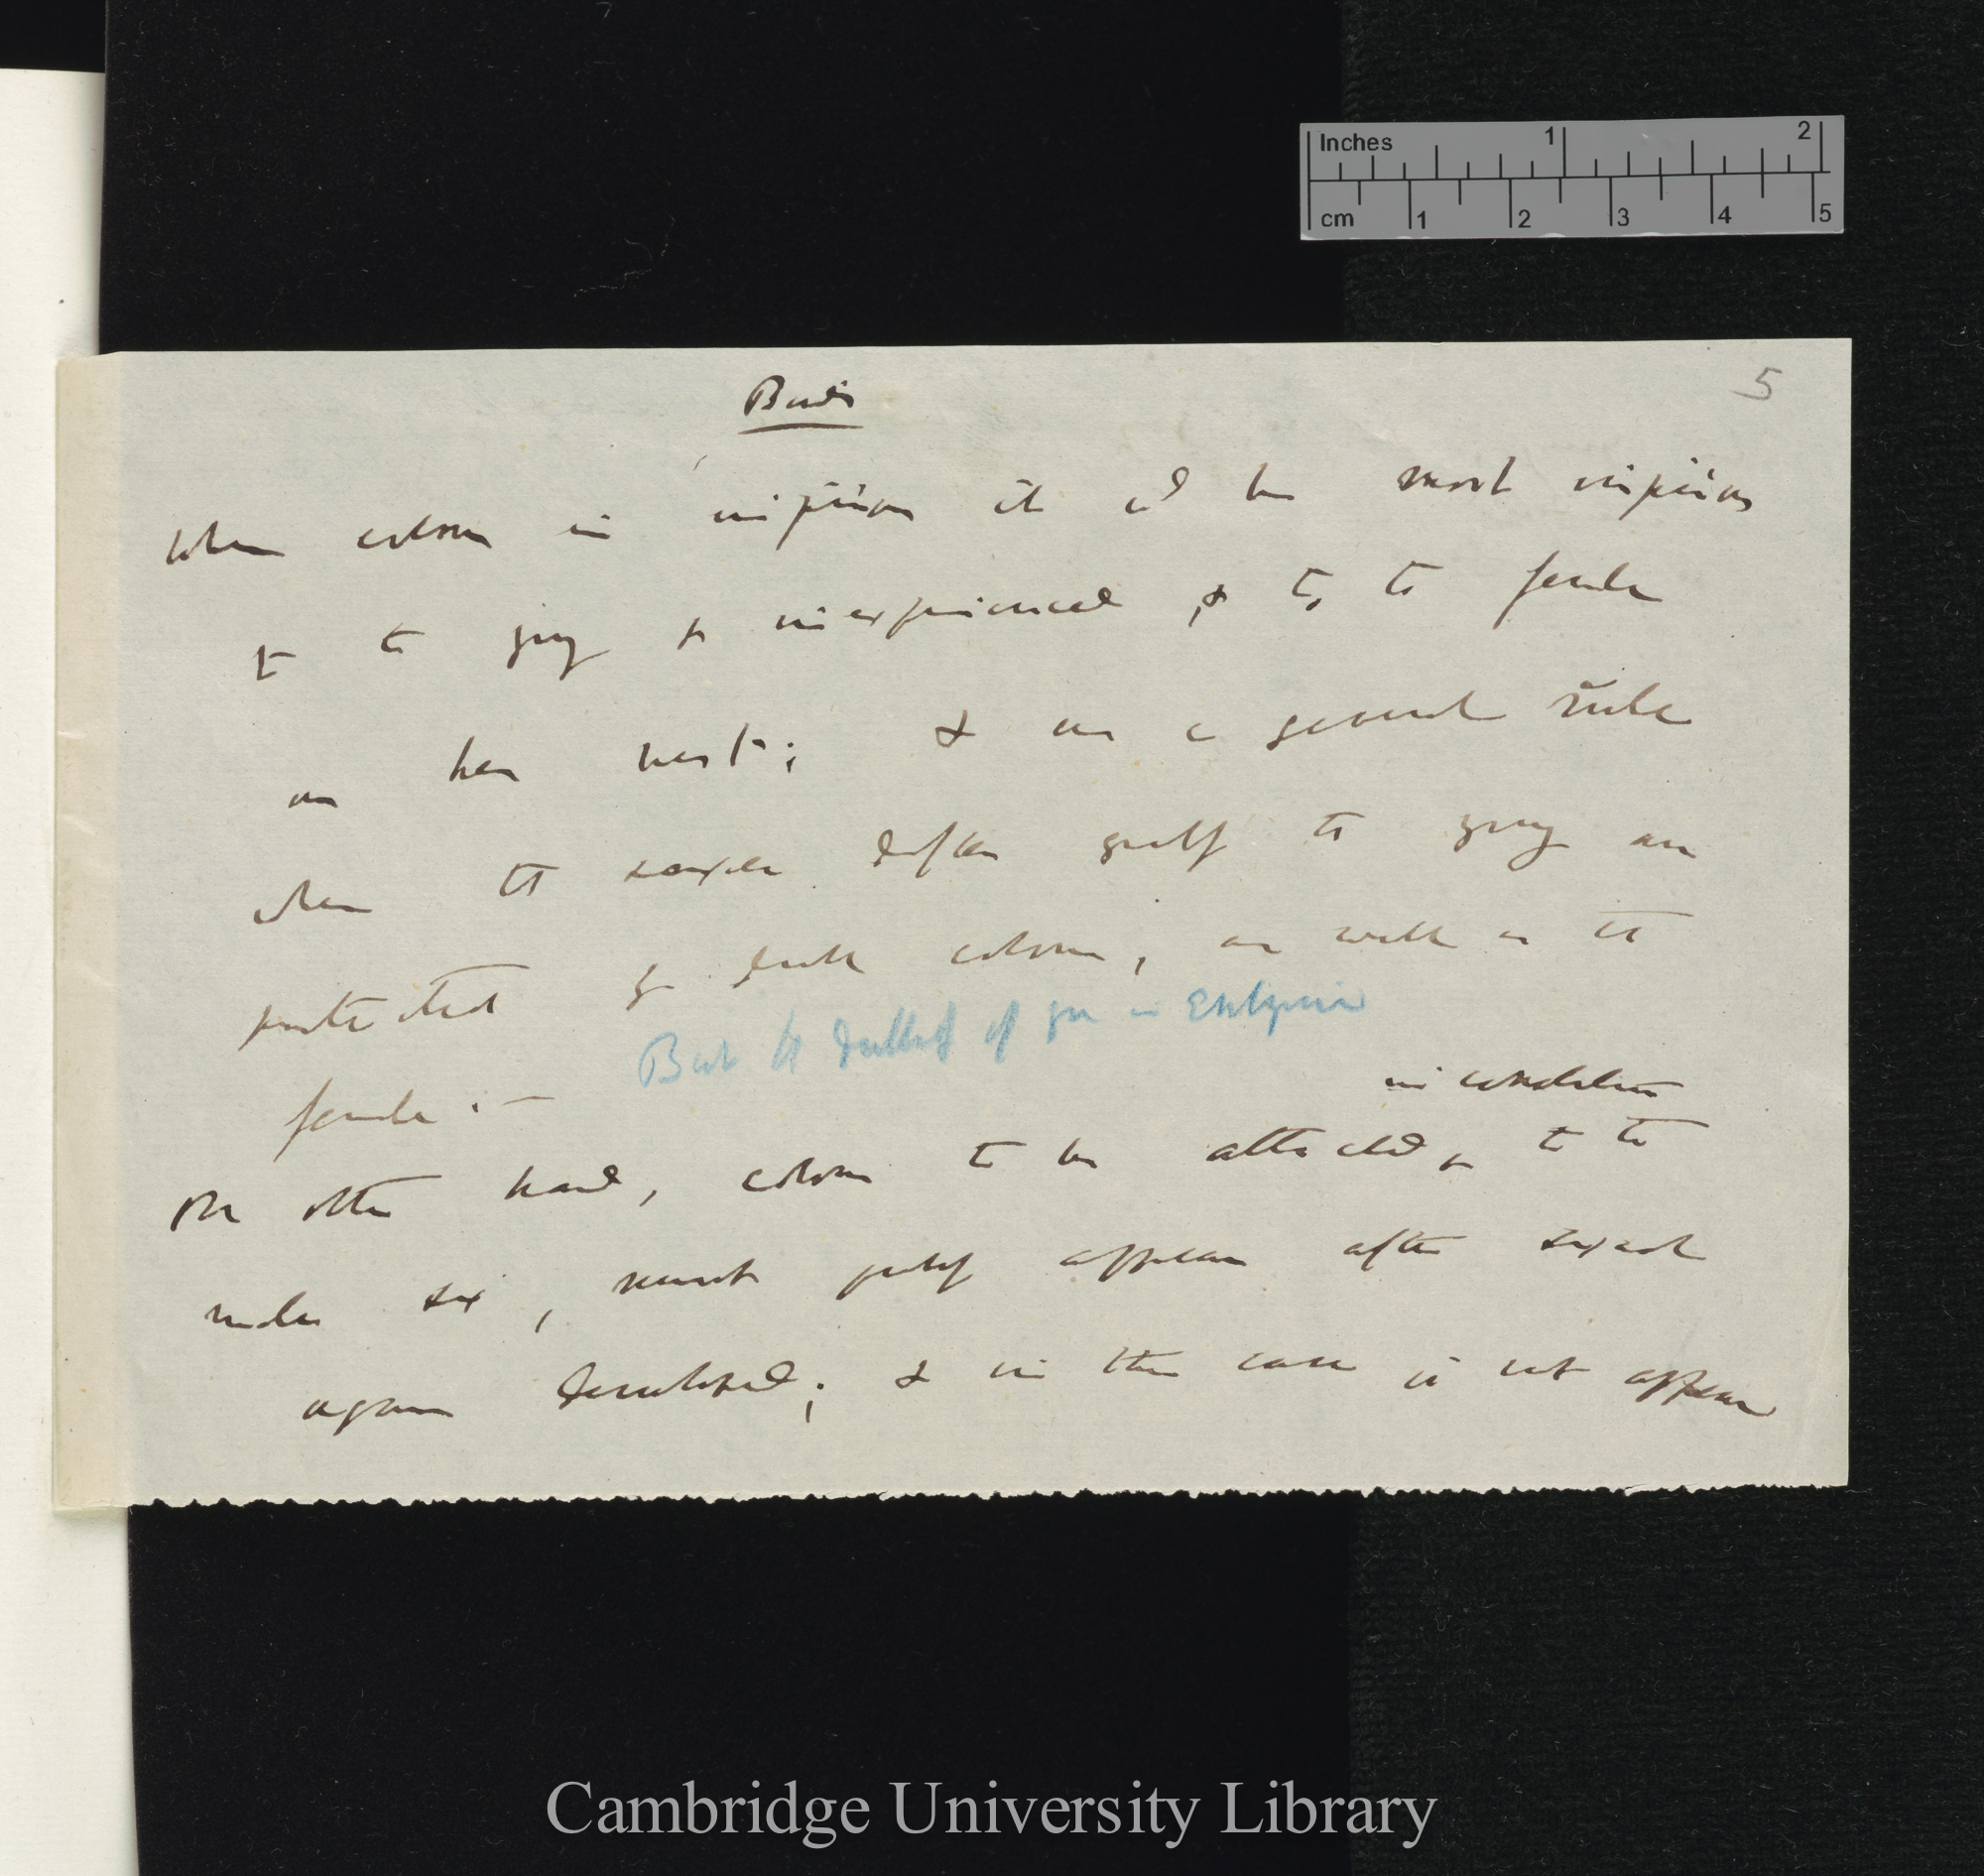 Inches 1 2
cm 1 2 3 4 5
5
Birds
When colour is injurious it wd be most injurious
to the young & inexperienced, & to the female
on her nest; & as a general rule
when the sexes differ the young are
protected by dull colour, as well as the
female.—
But the dullest of in
in
On other hand, colour to be attached to the
male sex, must appear after sexual
organs developed; & in this case is not appear
Cambridge University Library